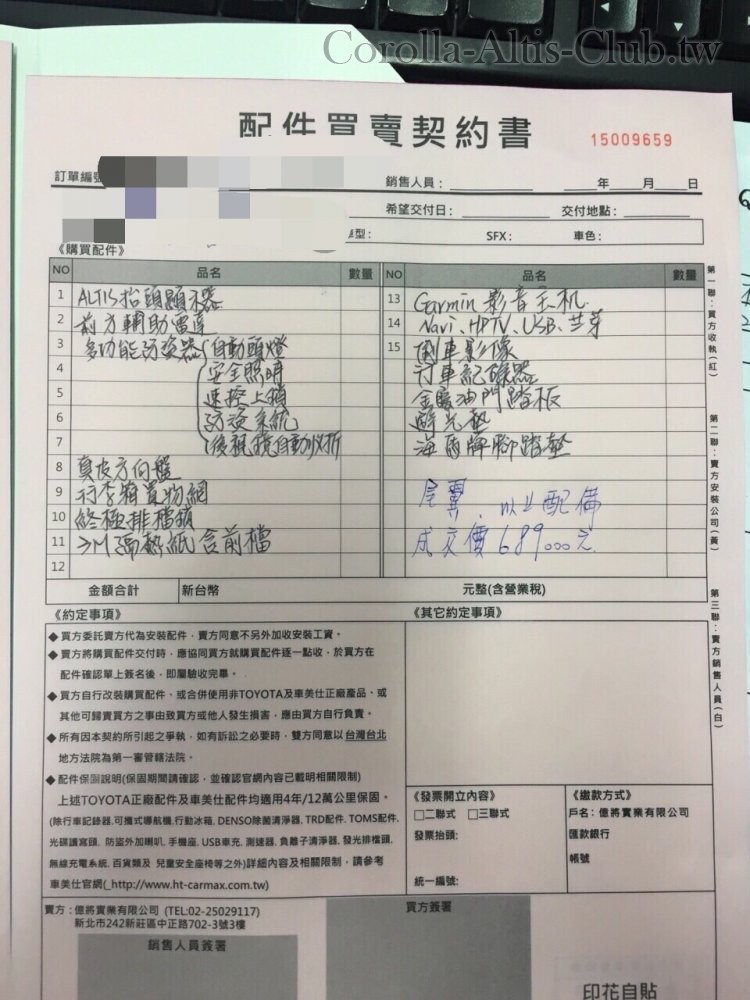 Corolla-Altis-Club.tw
配件買賣契約書
15009659
訂單編號
銷售人員： 年 月 日
希望交付日： 交付地點：
型： SFX： 車色：
《購買配件》
NO 品名 數量 NO 品名 數量
1 ALTIS抬頭顯示器
2 前方輔助雷達
3 多功能防盜器 自動頭燈
4 安全照明
5 速控上鎖
6 防盜系統
7 後視鏡自動收折
8 真皮方向盤
9 行李箱置物網
10 終極排檔鎖
11 3M隔熱紙含前檔
12
13 Garmin 影音主机
14 Navi、HDTV、USB、芽
15 倒車影像
行車紀錄器
金屬油門踏板
避光墊
海馬牌腳踏墊
尾翼、以上配備
成交價689,000元
第一聯：買方收執(紅)
第二聯：賣方安裝公司(黃)
第三聯：賣方銷售人員(白)
金額合計 新台幣 元整(含營業稅)
《約定事項》
◆買方委託賣方代為安裝配件，賣方同意不另外加收安裝工資。
◆賣方將購買配件交付時，應協同買方就購買配件逐一點收，於買方在
配件確認單上簽名後，即屬驗收完畢。
◆買方自行改裝購買配件、或合併使用非TOYOTA及車美仕正廠產品、或
其他可歸責買方之事由致買方或他人發生損害，應由買方自行負責。
◆所有因本契約所引起之爭執，如有訴訟之必要時，雙方同意以台灣台北
地方法院為第一審管轄法院。
◆配件保固說明(保固期間請確認，並確認官網內容已載明相關限制)
上述TOYOTA正廠配件及車美仕配件均適用4年/12萬公里保固。
(除行車記錄器,可攜式導航機,行動冰箱, DENSO除菌清淨器, TRD配件, TOMS配件,
光碟讀寫頭, 防盜外加喇叭, 手機座, USB車充, 測速器, 負離子清淨器, 發光排檔頭,
無線充電系統, 百貨類及 兒童安全座椅等之外)詳細內容及相關限制，請參考
車美仕官網(_http://www.ht-carmax.com.tw)
《其它約定事項》
《發票開立內容》
□二聯式 □三聯式
發票抬頭：
統一編號：
《繳款方式》
戶名：億將實業有限公司
匯款銀行
帳號
賣方：億將實業有限公司 (TEL:02-25029117)
新北市242新莊區中正路702-3號3樓
銷售人員簽署
買方簽署
印花自貼